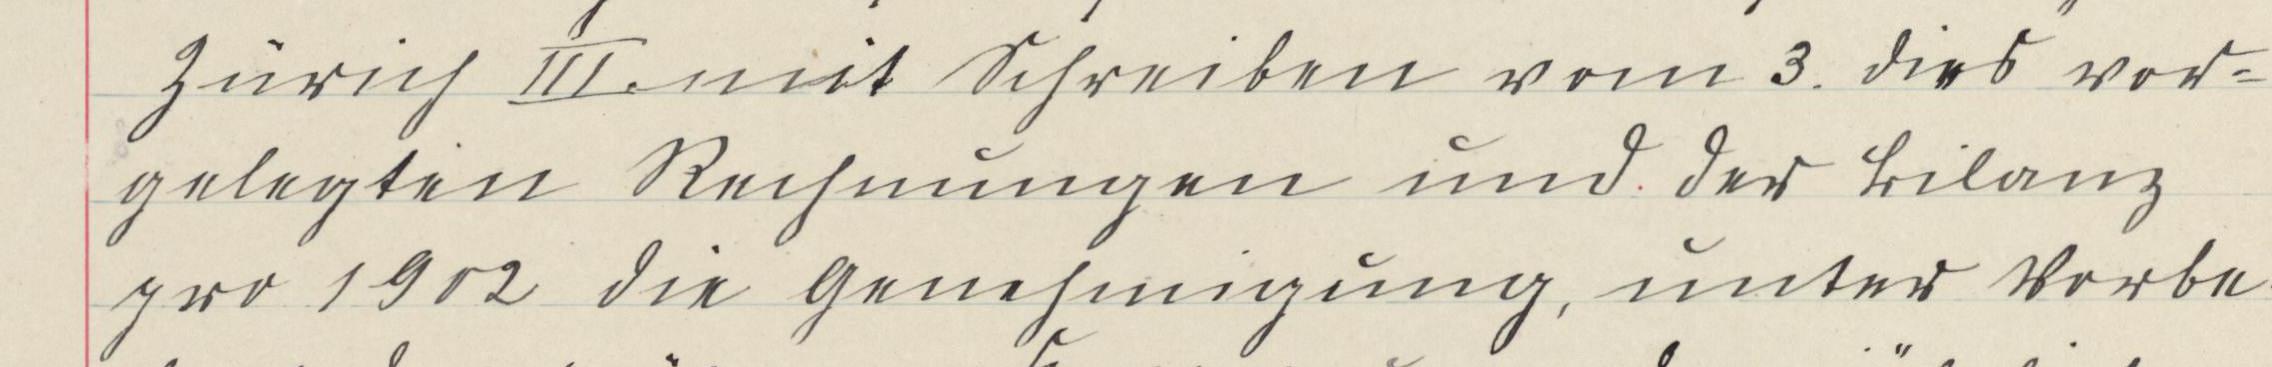 Zürich III. mit Schreiben vom 3. dies vor=
gelegten Rechnungen und der Bilanz
pro 1902 die Genehmigung, unter Vorbe-